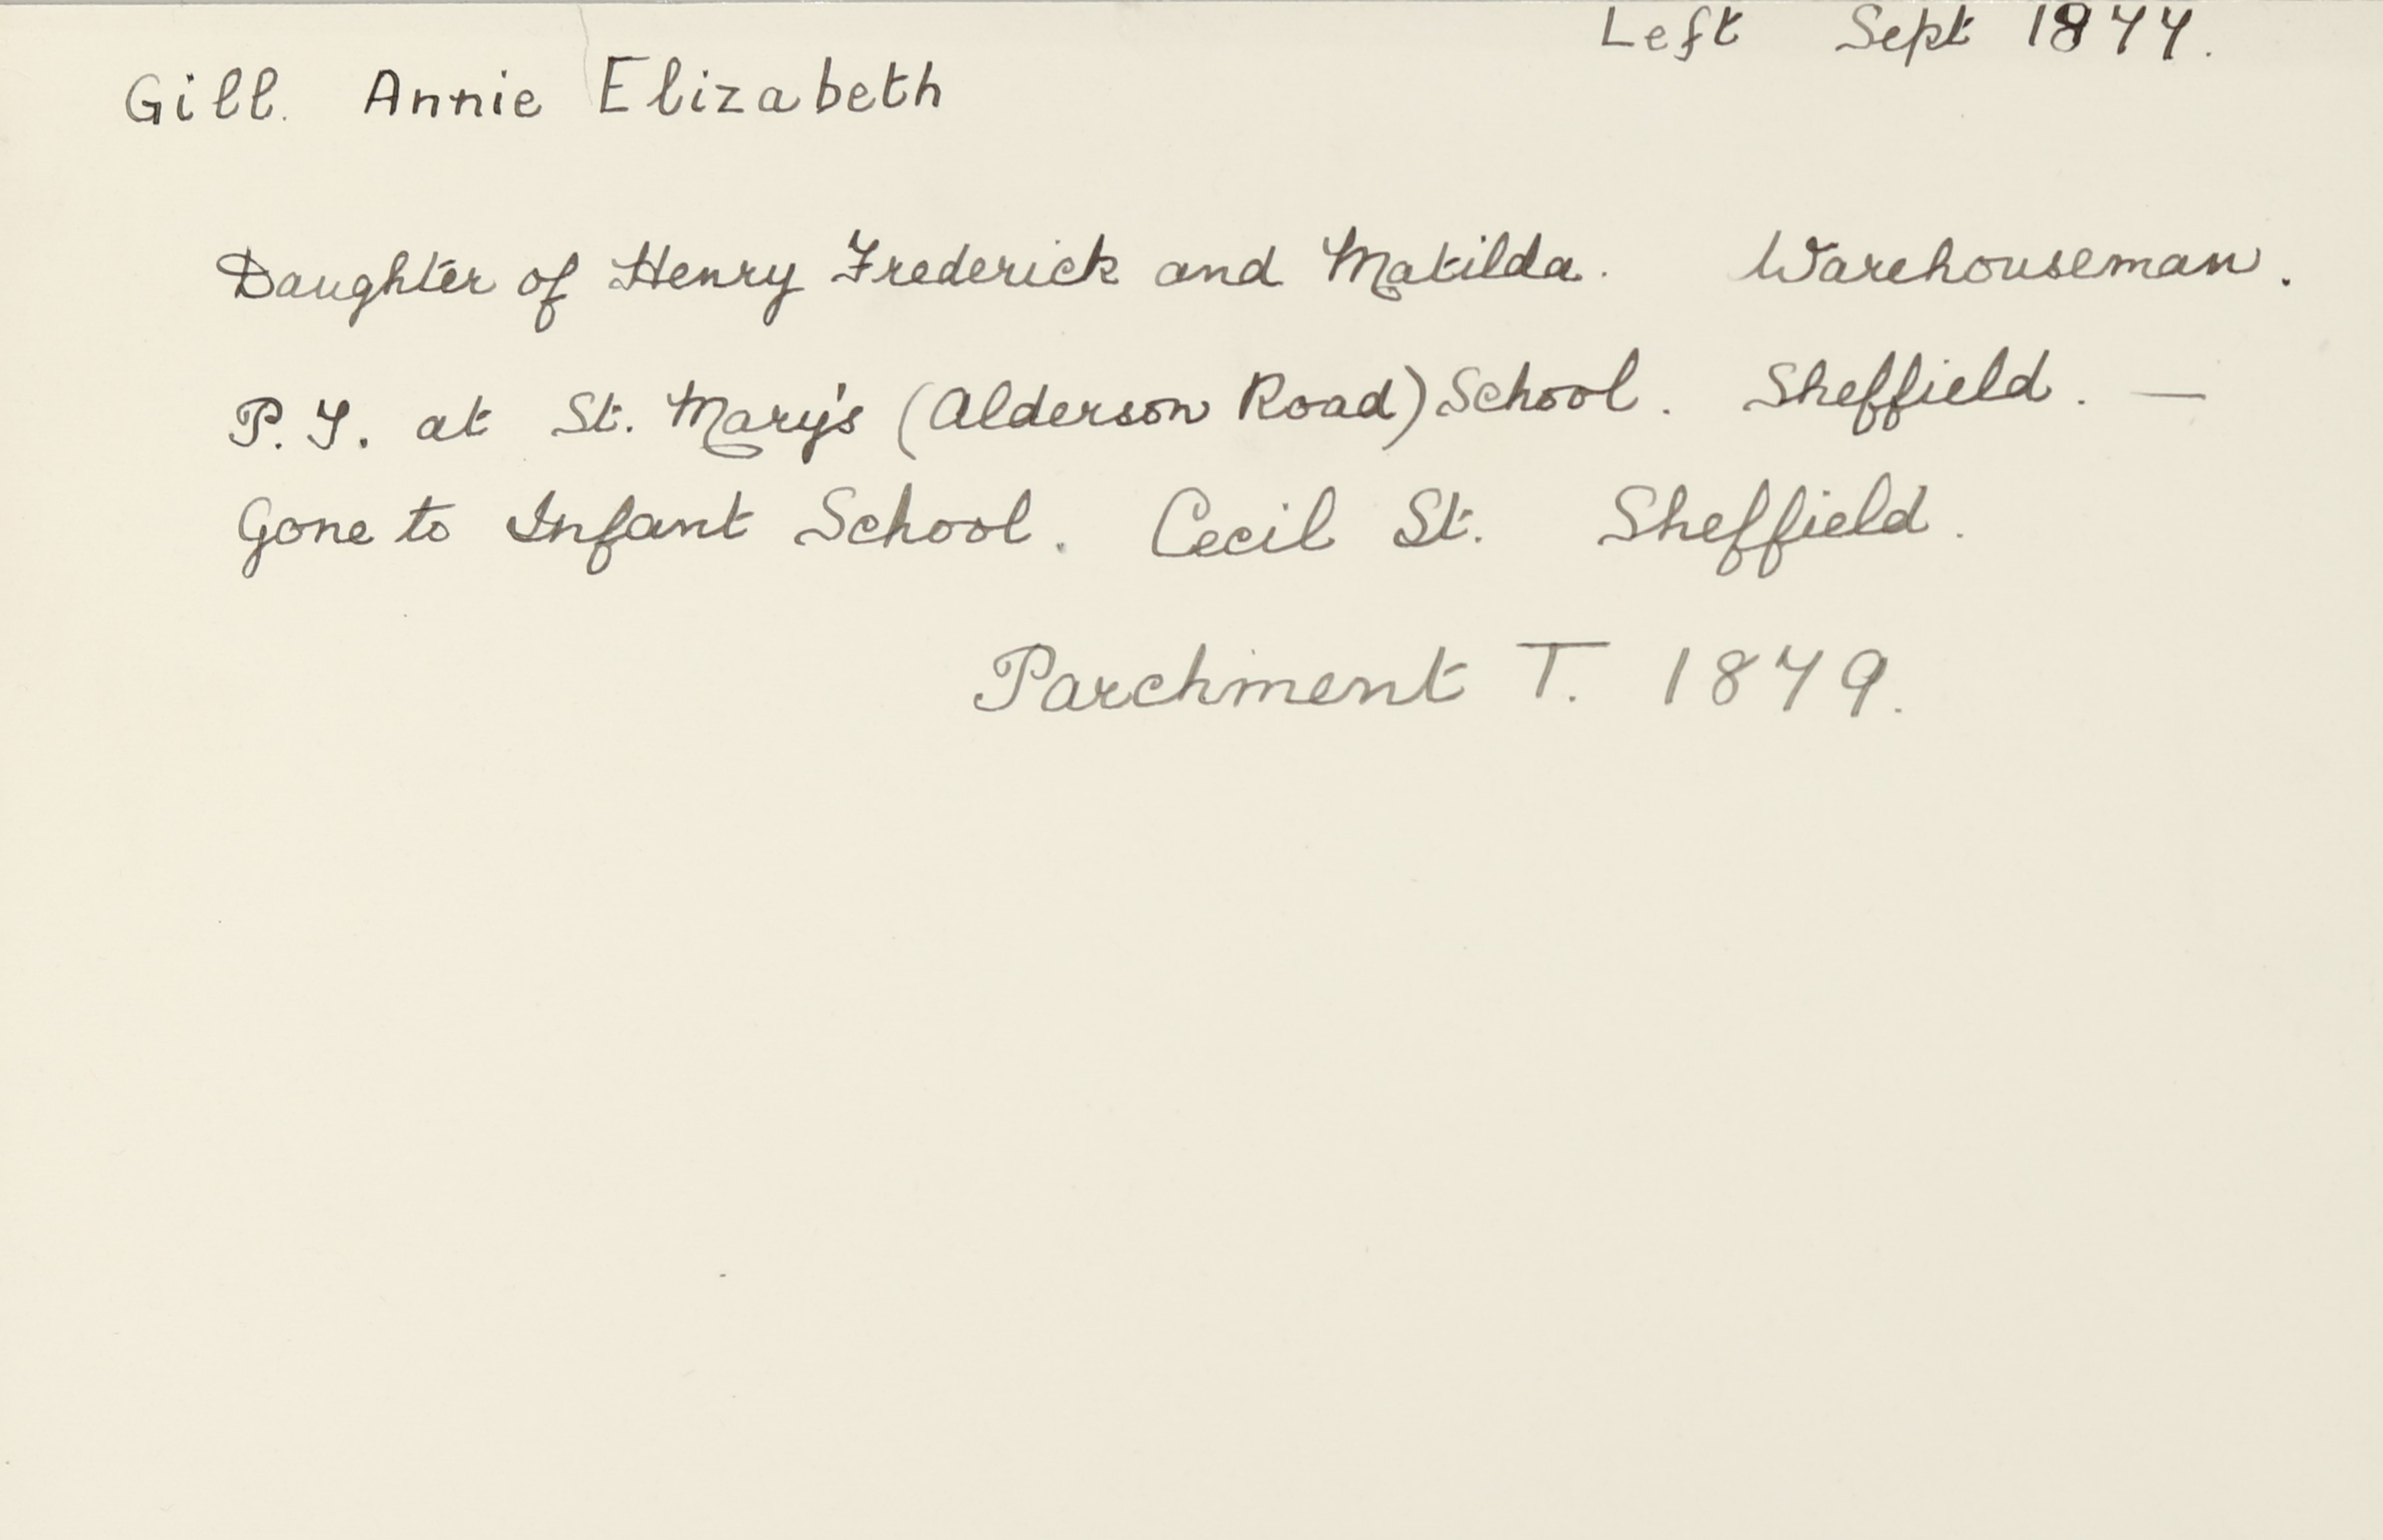 Left Sept 1877.
Gill. Annie Elizabeth
Daughter of Henry Frederick and Matilda. Warehouseman.
P.T. at St. Mary's (Alderson Road) School. Sheffield. —
Gone to Infant School. Cecil St. Sheffield.
Parchment T. 1879.